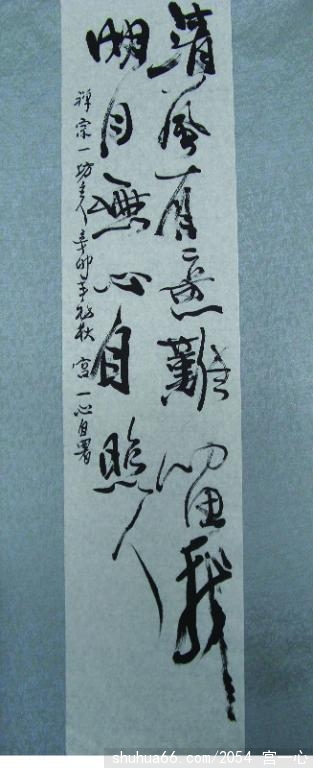 清風有意難留我
明月無心自照人
禪宗一坊主人辛卯年初秋宮一心自署
shuhua66.com/2054 宫一心